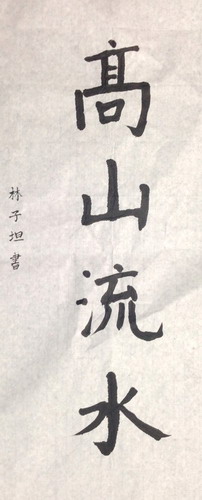 髙山流水
林子坦書